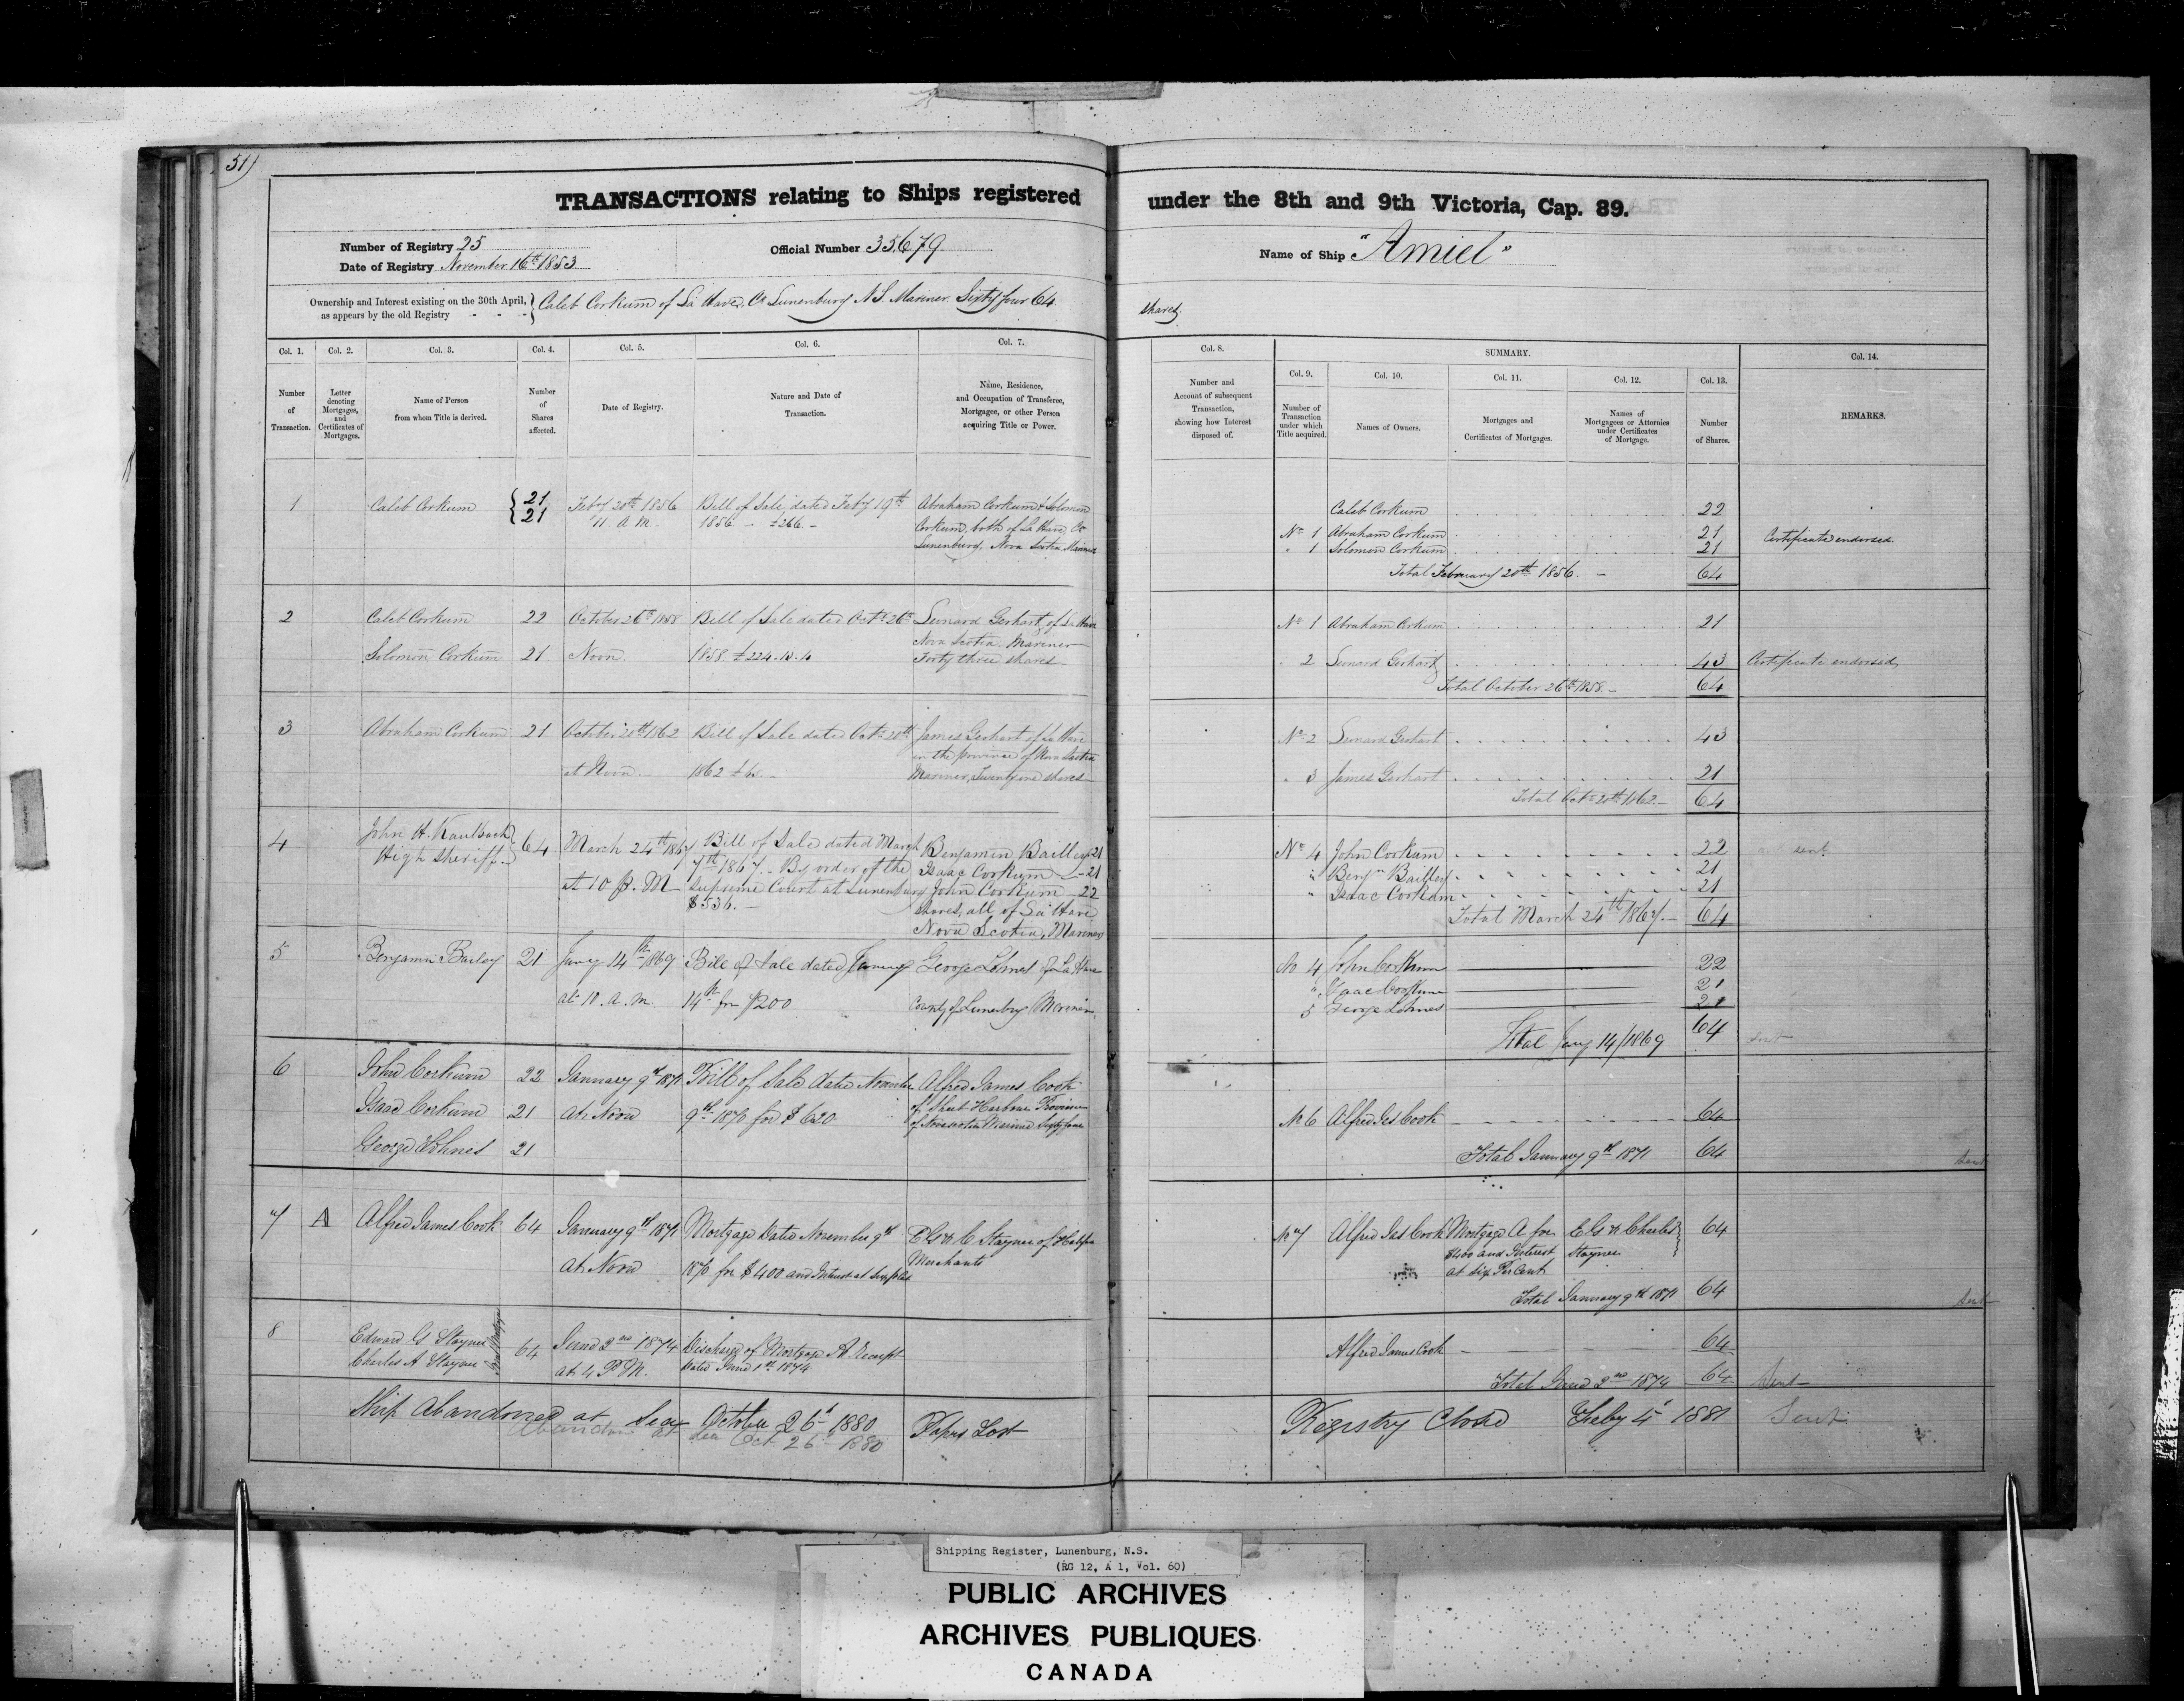 51)
TRANSACTIONS relating to Ships registered under the 8th and 9th Victoria, Cap. 89.
Number of Registry 25
Date of Registry November 16th 1853
Official Number 35,679
Name of Ship "Amiel"
Ownership and Interest existing on the 30th April, as appears by the old Registry - - -
Caleb Corkum of La Have, Co Lunenburg N.S. Mariner. Sixty four 64 shares
Col. 1. Col. 2. Col. 3. Col. 4. Col. 5. Col. 6. Col. 7. Col. 8. SUMMARY. Col. 14.
Col. 9. Col. 10. Col. 11. Col. 12. Col. 13.
Number of Transaction.
Letter denoting Mortgages, and Certificates of Mortgages.
Name of Person from whom Title is derived.
Number of Shares affected.
Date of Registry.
Nature and Date of Transaction.
Name, Residence, and Occupation of Transferee, Mortgagee, or other Person acquiring Title or Power.
Number and Account of subsequent Transaction, showing how Interest disposed of.
Number of Transaction under which Title acquired.
Names of Owners.
Mortgages and Certificates of Mortgages.
Names of Mortgagees or Attornies under Certificates of Mortgage.
Number of Shares.
REMARKS.
1
Caleb Corkum
21
21
Feby 20th 1856
11 A.M.
Bill of Sale, dated Feby 19th
1856 - £266 -
Abraham Corkum & Solomon
Corkum, both of La Have Co
Lunenburg, Nova Scotia Mariners
Caleb Corkum 22
No 1 Abraham Corkum 21
" 1 Solomon Corkum 21
Total February 20th 1856. - 64
Certificate endorsed.
2
Caleb Corkum 22
Solomon Corkum 21
October 26th 1858
Noon.
Bill of Sale dated Octr 26th
1858 £224.
Leonard Gerhart, of La Have
Nova Scotia. Mariner
Forty three shares
No 1 Abraham Corkum 21
2 Leonard Gerhart 43
Total October 26th 1858. - 64
Certificate endorsed,
3
Abraham Corkum 21
October 20th 1862
at Noon.
Bill of Sale dated Octr 20th
1862
James Gerhart of La Have
in the province of Nova Scotia
Mariner, Twenty one shares
No 2 Leonard Gerhart 43
" 3 James Gerhart 21
Total Octr 20th 1862 - 64
4
John H. Kaulback
High Sheriff
64
March 24th 1867
at 10 A.M
Bill of Sale dated March
7th 1867. - By order of the
Supreme Court at Lunenburg
$536. -
Benjamin Bailley 21
Isaac Corkum - 21
John Corkum - 22
shares, all of La Have
Nova Scotia, Mariners
No 4 John Corkum 22
" Benjn Bailley 21
" Isaac Corkum 21
Total March 24th 1867. - 64
sent
5
Benjamin Bailey 21
Jany 14th 1869
at 10. a. m.
Bill of Sale dated January
14th for $200
George Lohnes of La Have
County of Lunenburg Mariner.
No 4 John Corkum 22
" Isaac Corkum 21
5 George Lohnes 21
Total Jany 14/1869 64
sent
6
John Corkum 22
Isaac Corkum 21
George Lohnes 21
January 9th 1871
at Noon
Bill of Sale dated November
9th 1870 for $620
Alfred James Cook
of Sheet Harbour Province
of Nova Scotia Mariner Sixty four
No 6 Alfred Jas Cook 64
Total January 9th 1871 64
Sent
7
A
Alfred James Cook 64
January 9th 1871
at Noon
Mortgage dated November 9th
1870 for $400 and Interest at Six p Ct
E G & C Stayner of Halifax
Merchants
No 7 Alfred Jas Cook
Mortgage A for
$400 and Interest
at Six Per Cent
E G & Charles
Stayner
64
Total January 9th 1871 64
Sent
8
Edward G Stayner
Charles A Stayner
64
June 2nd 1874
at 4 P M.
Discharge of Mortgage A Receipt
dated June 1st 1874
Alfred James Cook 64
Total June 2nd 1874 64
Sent
Ship Abandoned at Sea October 26th 1880
Papers Lost
Abandoned at Sea Oct 26th 1880
Registry Closed Feby 4th 1881
Sent
Shipping Register, Lunenburg, N.S.
(RG 12, A 1, Vol. 60)
PUBLIC ARCHIVES
ARCHIVES PUBLIQUES
CANADA